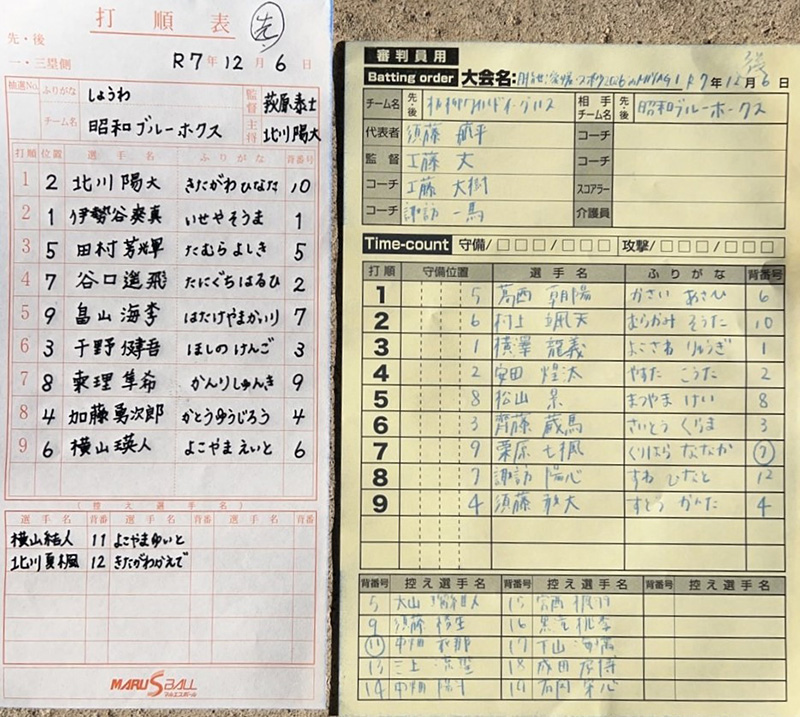 打順表
先
先・後
一・三塁側
R7年 12月 6日
抽選No.
ふりがな しょうわ
チーム名 昭和ブルーホクス
監督 萩原泰士
主将 北川陽大
打順 位置 選手名 ふりがな 背番号
1 2 北川 陽大 きたがわひなた 10
2 1 伊勢谷奏真 いせやそうま 1
3 5 田村芳輝 たむらよしき 5
4 7 谷口遥飛 たにぐちはるひ 2
5 9 畠山海李 はたけやまかいり 7
6 3 干野健吾 ほしのけんご 3
7 8 東理隼希 かんりしゅんき 9
8 4 加藤勇次郎 かとうゆうじろう 4
9 6 横山瑛人 よこやまえいと 6
(控え選手名)
選手名 背番 選手名 背番号 選手名 背番号
横山結人 11 よこやまゆいと
北川夏楓 12 きたがわかえで
MARU S BALL
マルエスボール
審判員用
後
Batting order 大会名: R7年12月6日
チーム名 先・後
相手チーム名 先・後 昭和ブルーホークス
代表者 須藤
コーチ
監督 工藤 丈
コーチ
コーチ 工藤 大樹
スコアラー
コーチ 諏訪 一馬
介護員
Time-count 守備/□□□/□□□ 攻撃/□□□/□□□
打順 守備位置 選手名 ふりがな 背番号
1 5 葛西 朝陽 かさい あさひ 6
2 6 村上 颯天 むらかみ そうた 10
3 1 横澤 龍義 よこさわ りゅうぎ 1
4 2 安田 煌汰 やすた こうた 2
5 8 松山 景 まつやま けい 8
6 3 齊藤 蔵馬 さいとう くらま 3
7 9 栗原 七楓 くりはら ななか 7
8 7 諏訪 陽心 すわ ひなと 12
9 4 須藤 敢大 すとう かんた 4
背番号 控え選手名 背番号 控え選手名 背番号 控え選手名
5 大山 15
9 須藤 16
11 17
13 三上 18 成田
14